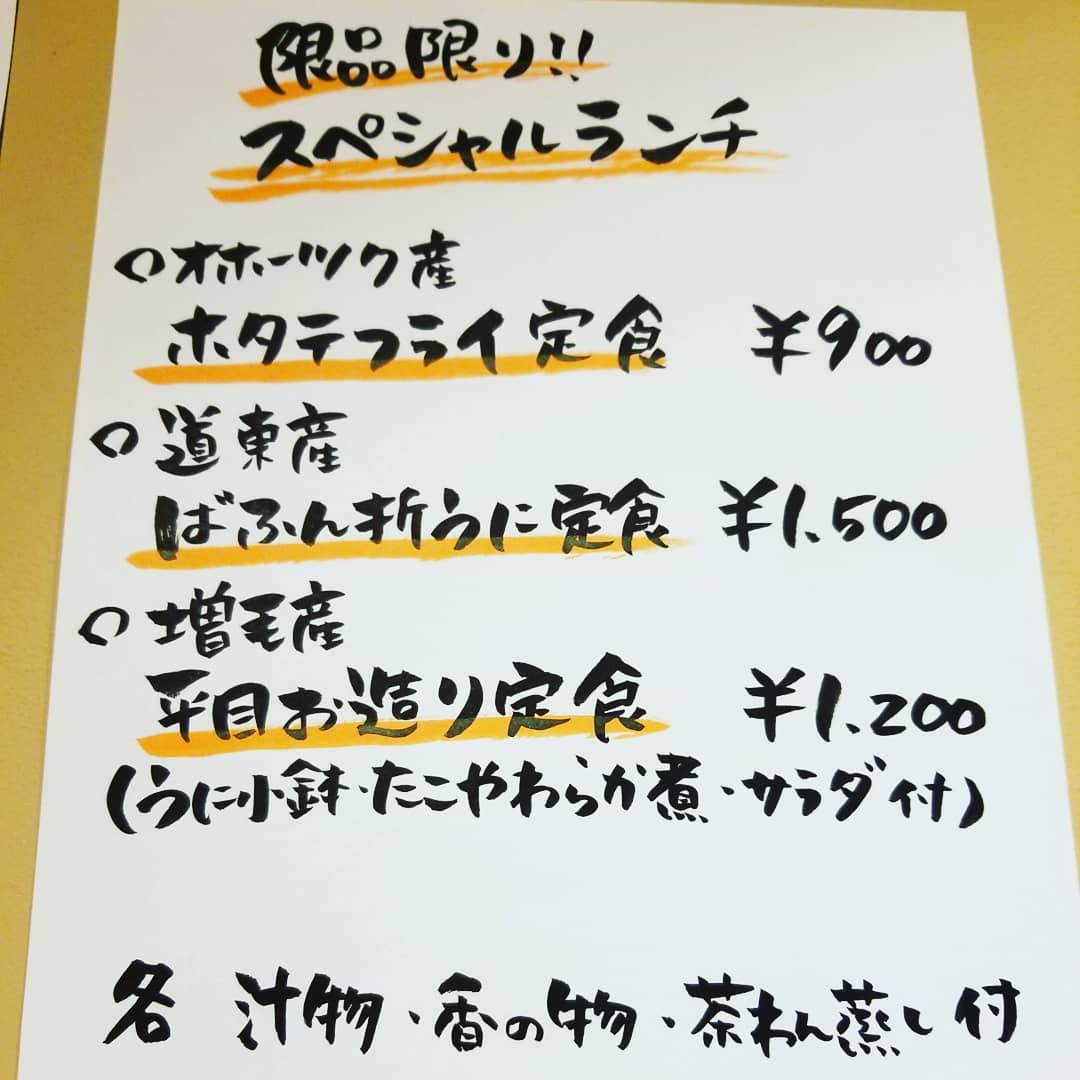 限品限り!!
スペシャルランチ
○オホーツク産
ホタテフライ定食 ¥900
○道東産
ばふん折うに定食 ¥1,500
○増毛産
平目お造り定食 ¥1,200
(うに小鉢・たこやわらか煮・サラダ付)
各 汁物・香の物・茶わん蒸し付